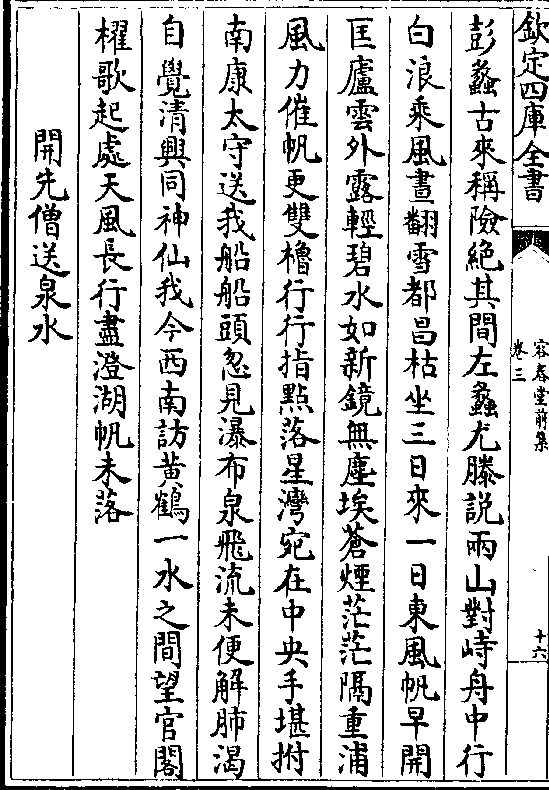 欽定四庫全書
容春堂前集
卷三
十六
彭蠡古來稱險絶其間左蠡尤滕説兩山對峙舟中行
白浪乘風晝翻雪都昌枯坐三日來一日東風帆早開
匡廬雲外露輕碧水如新鏡無塵埃蒼煙茫茫隔重浦
風力催帆更雙櫓行行指點落星灣宛在中央手堪拊
南康太守送我船船頭忽見瀑布泉飛流未便解肺渴
自覺清興同神仙我今西南訪黃鶴一水之間望官閣
櫂歌起處天風長行盡澄湖帆未落
開先僧送泉水